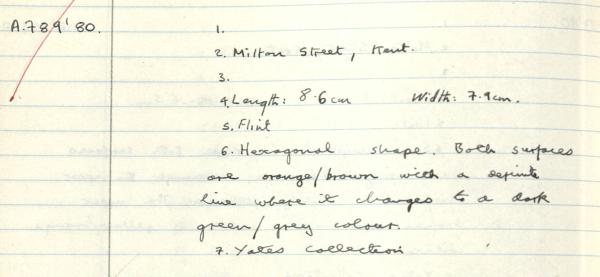 A.789'80.
1.
2. Milton Street, Kent.
3.
4. Length: 8.6cm Width: 7.9cm.
5. Flint
6. Hexagonal shape. Both surfaces
are orange/brown with a definite
line where it changes to a dark
green/grey colour.
7. Yates collection